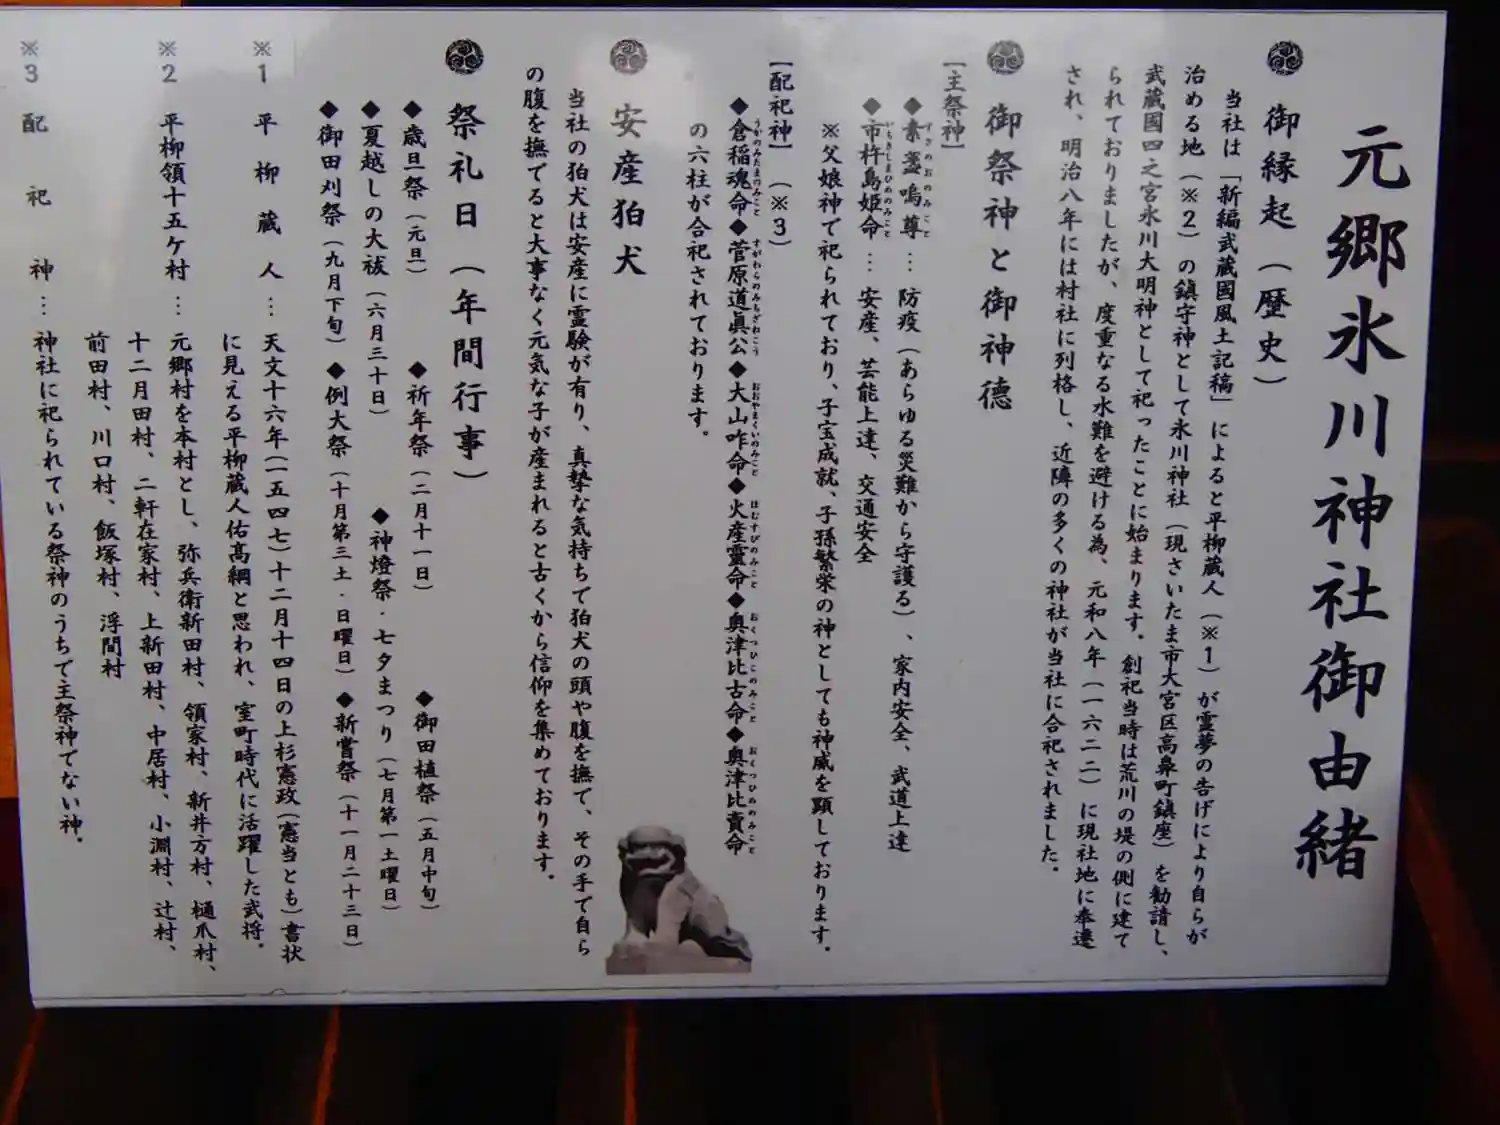 元郷氷川神社御由緒
御縁起（歴史）
当社は「新編武蔵國風土記稿」によると平柳蔵人（※1）が霊夢の告げにより自らが
治める地（※2）の鎮守神として氷川神社（現さいたま市大宮区高鼻町鎮座）を勧請し、
武蔵國四之宮氷川大明神として祀ったことに始まります。創祀当時は荒川の堤の側に建て
られておりましたが、度重なる水難を避ける為、元和八年（一六二二）に現社地に奉遷
され、明治八年には村社に列格し、近隣の多くの神社が当社に合祀されました。
御祭神と御神徳
【主祭神】
◆素盞嗚尊…防疫（あらゆる災難から守護る）、家内安全、武道上達
すさのおのみこと
◆市杵島姫命…安産、芸能上達、交通安全
いちきしまひめのみこと
※父娘神で祀られており、子宝成就、子孫繁栄の神としても神威を顕しております。
【配祀神】（※3）
◆倉稲魂命◆菅原道眞公◆大山咋命◆火産霊命◆奥津比古命◆奥津比賣命
うかのみたまのみこと すがわらのみちざねこう おおやまくいのみこと ほむすびのみこと おくつひこのみこと おくつひめのみこと
の六柱が合祀されております。
安産狛犬
当社の狛犬は安産に霊験が有り、真摯な気持ちで狛犬の頭や腹を撫で、その手で自ら
の腹を撫でると大事なく元気な子が産まれると古くから信仰を集めております。
祭礼日（年間行事）
◆歳旦祭（元旦） ◆祈年祭（二月十一日） ◆御田植祭（五月中旬）
◆夏越しの大祓（六月三十日） ◆神燈祭・七夕まつり（七月第一土曜日）
◆御田刈祭（九月下旬）◆例大祭（十月第三土・日曜日）◆新嘗祭（十一月二十三日）
※1 平柳蔵人…天文十六年（一五四七）十二月十四日の上杉憲政（憲当とも）書状
に見える平柳蔵人佑高綱と思われ、室町時代に活躍した武将。
※2 平柳領十五ケ村…元郷村を本村とし、弥兵衛新田村、領家村、新井方村、樋爪村、
十二月田村、二軒在家村、上新田村、中居村、小淵村、辻村、
前田村、川口村、飯塚村、浮間村
※3 配祀神…神社に祀られている祭神のうちで主祭神でない神。